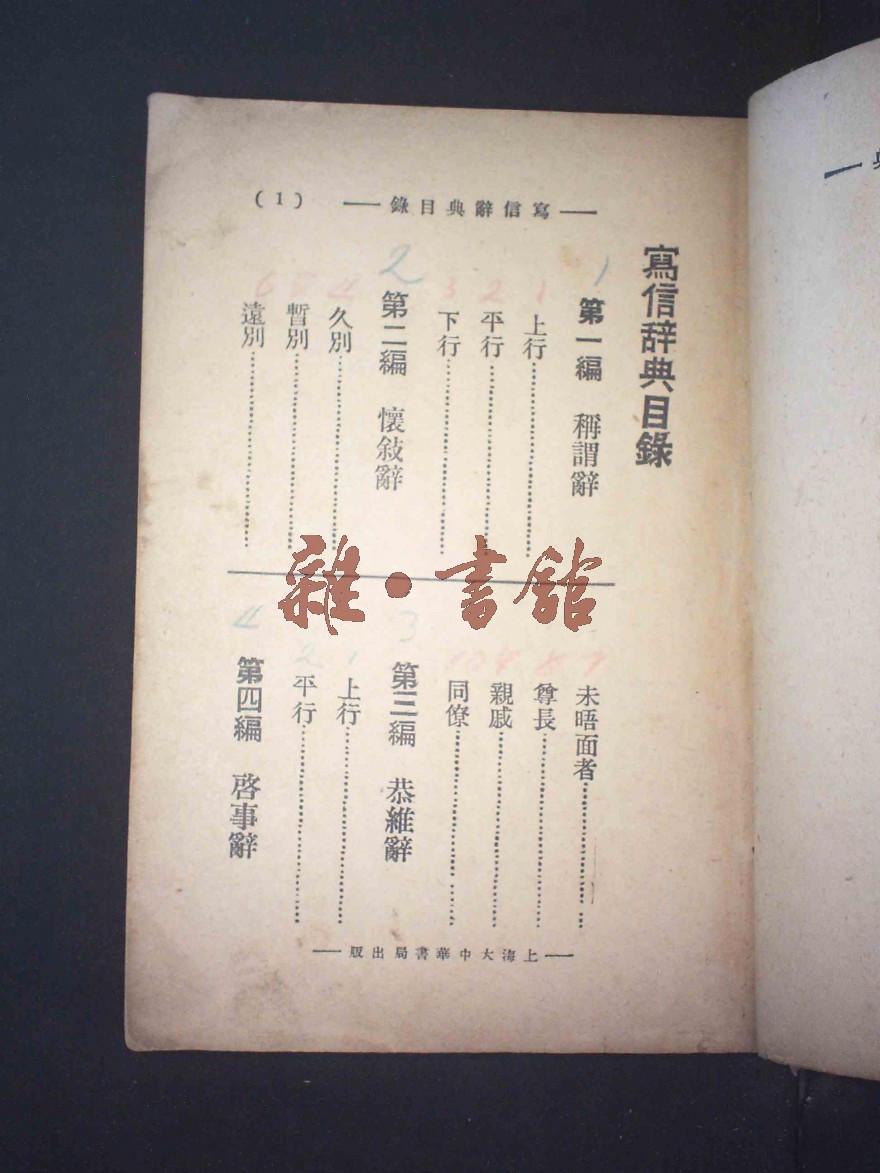 寫信辭典目錄
(1)
寫信辞典目錄
1
第一編　稱謂辭
1
上行
2
平行
3
下行
2
第二編　懷敍辭
4
久別
5
暫別
6
遠別
7
未晤面者
8
尊長
9
親戚
10
同僚
3
第三編　恭維辭
1
上行
2
平行
4
第四編　啓事辭
上海大中華書局出版
雜·書館